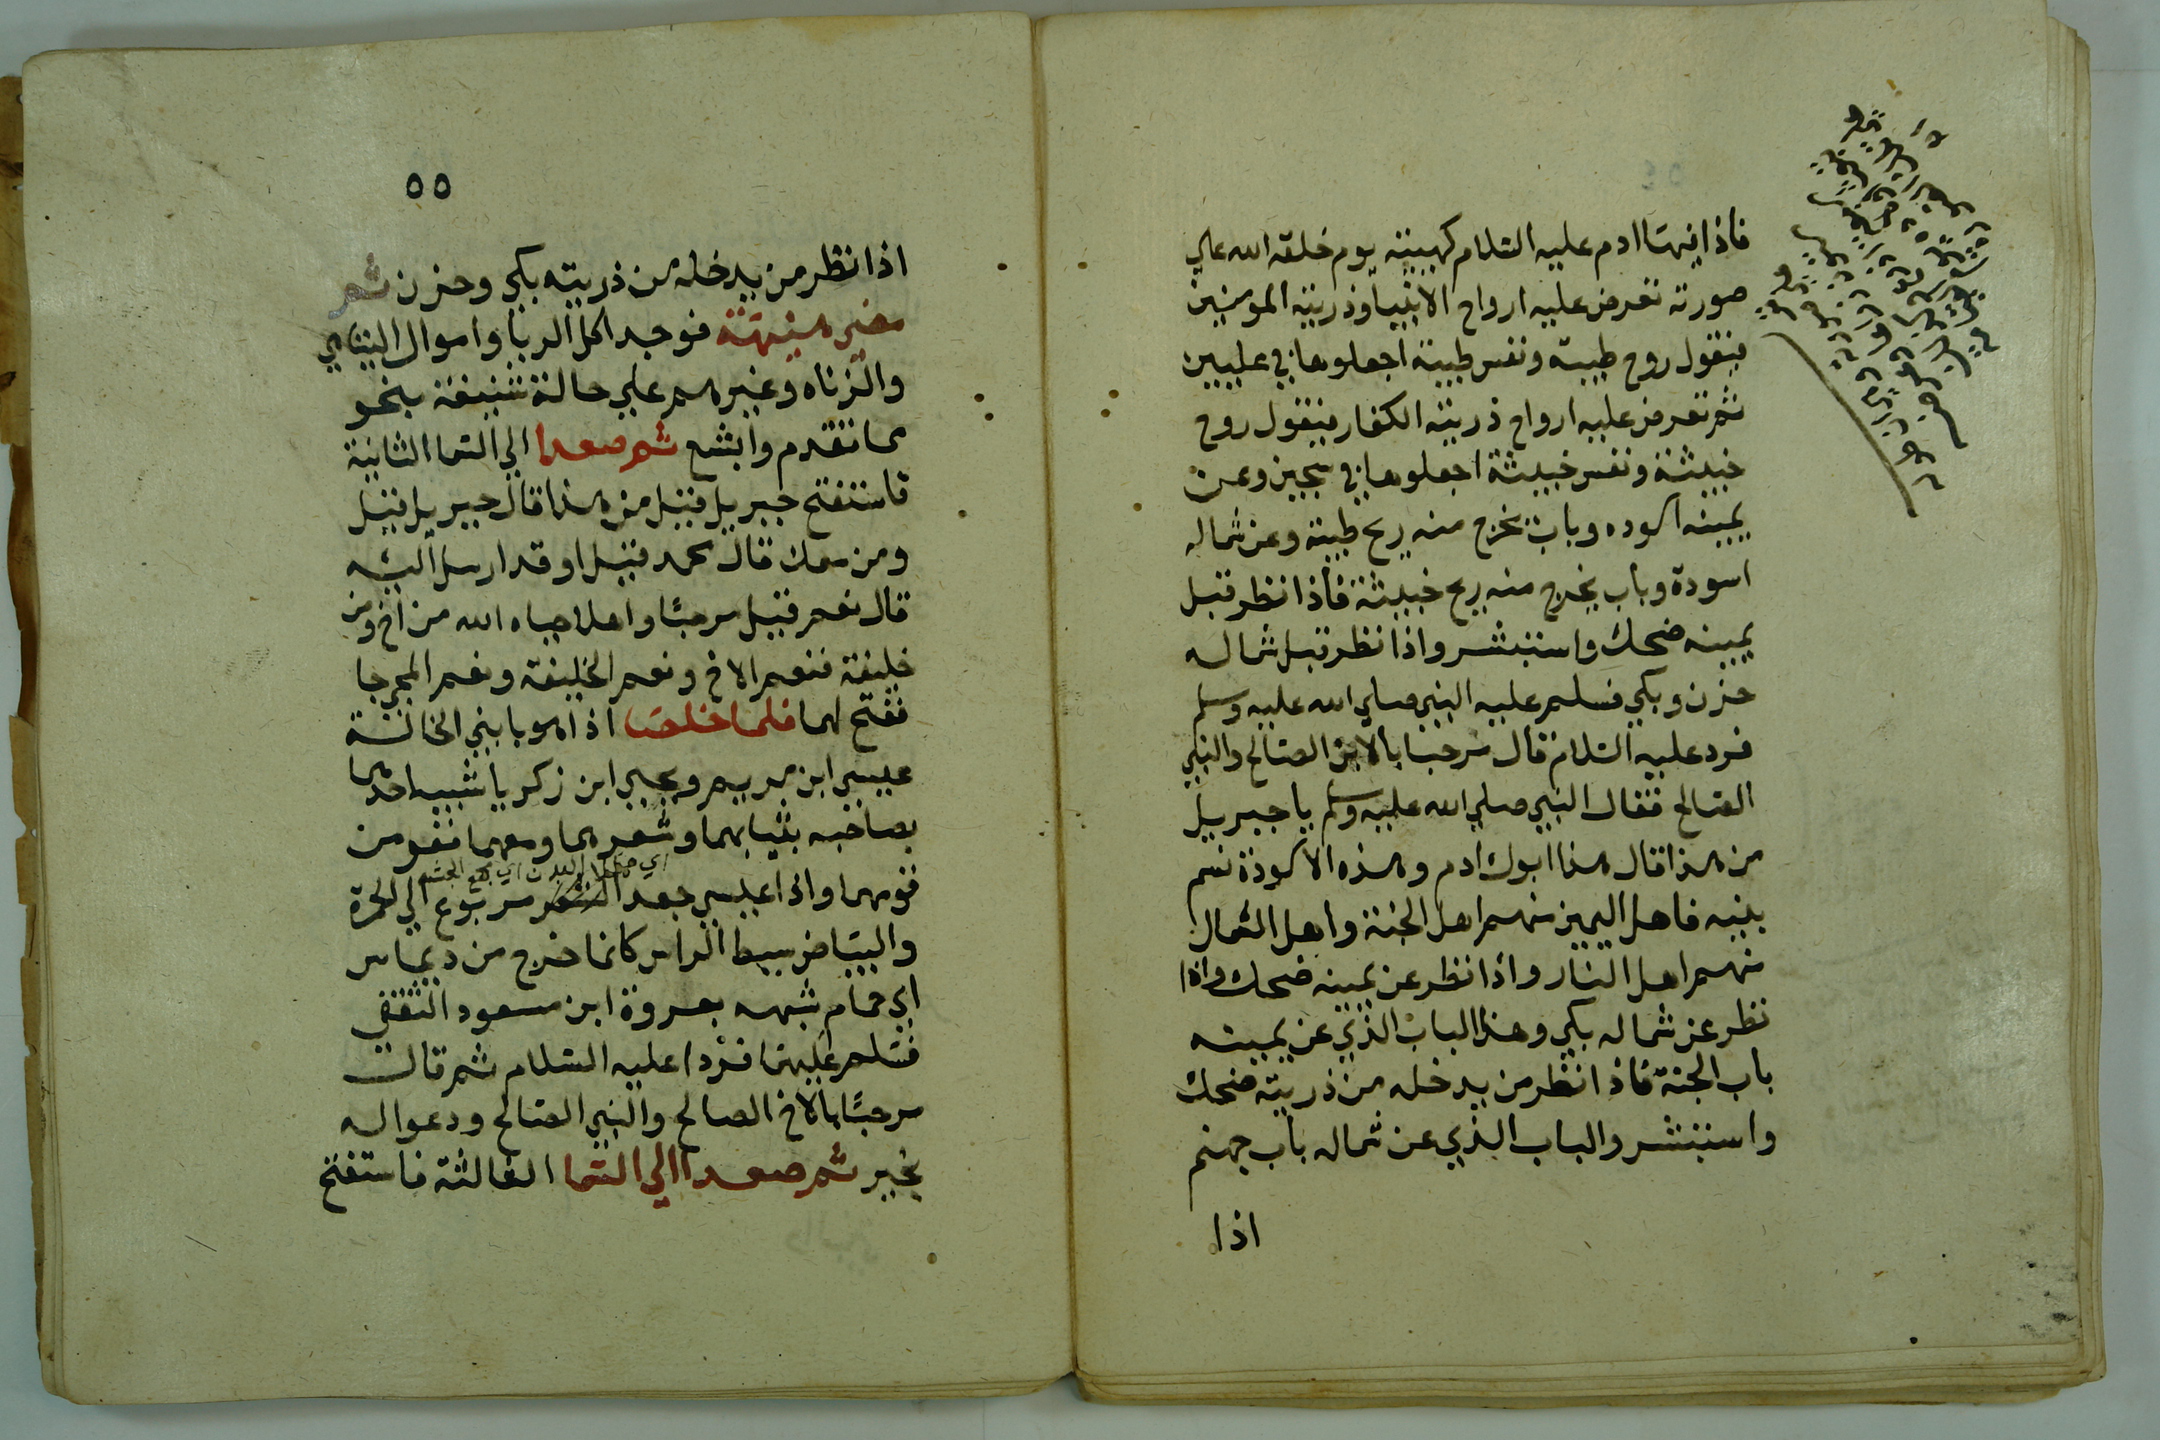 فاذا فيهما ادم عليه السلام كهيئته يوم خلقه الله علي
صورته تعرض عليه ارواح الانبيا وذريته المومنين
فيقول روح طيبة ونفس طيبة اجعلوها في عليين
ثم تعرض عليه ارواح ذريته الكفار فيقول روح
خبيثة ونفس خبيثة اجعلوها في سجين وعن
يمينه اسوده وباب تخرج منه ريح طيبة وعن شماله
اسودة وباب يخرج منه ريح خبيثة فاذا نظر قبل
يمينه ضحك واستبشر واذا نظر قبل شماله
حزن وبكي فسلم عليه النبي صلي الله عليه وسلم
فرد عليه السلام قال مرحبا بالابن الصالح والنبي
الصالح فقال النبي صلي الله عليه وسلم يا جبريل
من هذا قال هذا ابوك ادم وهذه الاسودة نسم
بنيه فاهل اليمين منهم اهل الجنة واهل الشمال
منهم اهل النار واذا نظر عن يمينه ضحك واذا
نظر عن شماله بكي وهذا الباب الذي عن يمينه
باب الجنة فاذا نظر من يدخله من ذريته ضحك
واستبشر والباب الذي عن شماله باب جهنم
اذا
٥٥
اذا نظر من يدخله من ذريته بكي وحزن ثم
مضي هنيهة فوجد اكل الربا واموال اليتامي
والزناه وغيرهم علي حالة شنيعة بنحو
ما تقدم وابشع ثم صعدا الي السما الثانية
فاستفتح جبريل فقيل من هذا قال جبريل قيل
ومن معك قال محمد قيل او قد ارسل اليه
قال نعم قيل مرحبًا واهلا حياه الله من اخ ومن
خليفة فنعم الاخ ونعم الخليفة ونعم المجي جا
ففتح لهما فلما خلصا اذا هو بابني الخالة
عيسي ابن مريم ويحيي ابن زكريا شبيه احدهما
بصاحبه بثيابهما وشعرهما ومعهما نفر من
قومهما واذا عيسي جعد مربوع الي الحمرة
والبياض سبط الراس كانما خرج من ديماس
اي حمام شبهه بعروة ابن مسعود الثقفي
فسلم عليهما فردا عليه السلام ثم قالا
مرحبًا بالاخ الصالح والنبي الصالح ودعوا له
بخير ثم صعدا الي السما الثالثة فاستفتح